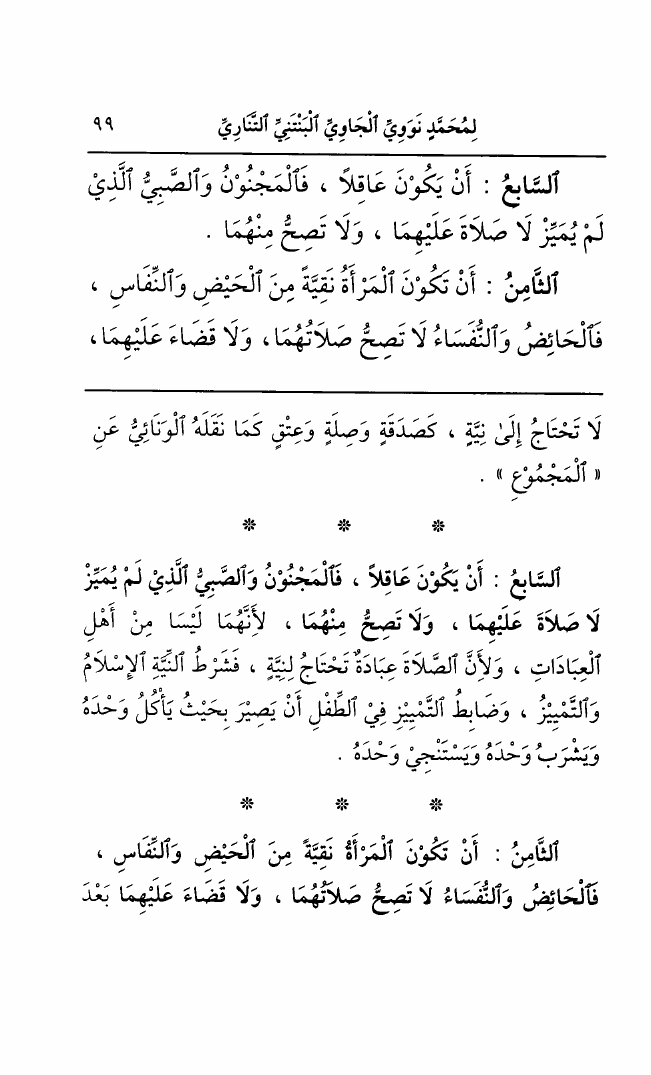 لِمُحَمَّدٍ نَوَوِيِّ ٱلْجَاوِيِّ ٱلْبَنْتَنِيِّ ٱلتَّنَارِيِّ ٩٩
ٱلسَّابِعُ : أَنْ يَكُوْنَ عَاقِلاً ، فَٱلْمَجْنُوْنُ وَٱلصَّبِيُّ ٱلَّذِيْ
لَمْ يُمَيِّزْ لَا صَلَاةَ عَلَيْهِمَا ، وَلَا تَصِحُّ مِنْهُمَا .
ٱلثَّامِنُ : أَنْ تَكُوْنَ ٱلْمَرْأَةُ نَقِيَّةً مِنَ ٱلْحَيْضِ وَٱلنِّفَاسِ ،
فَٱلْحَائِضُ وَٱلنُّفَسَاءُ لَا تَصِحُّ صَلَاتُهُمَا ، وَلَا قَضَاءَ عَلَيْهِمَا ،
لَا تَحْتَاجُ إِلَىٰ نِيَّةٍ ، كَصَدَقَةٍ وَصِلَةٍ وَعِتْقٍ كَمَا نَقَلَهُ ٱلْوَنَائِيُّ عَنِ
« ٱلْمَجْمُوْعِ » .
* * *
ٱلسَّابِعُ : أَنْ يَكُوْنَ عَاقِلاً ، فَٱلْمَجْنُوْنُ وَٱلصَّبِيُّ ٱلَّذِيْ لَمْ يُمَيِّزْ
لَا صَلَاةَ عَلَيْهِمَا ، وَلَا تَصِحُّ مِنْهُمَا ، لأَنَّهُمَا لَيْسَا مِنْ أَهْلِ
ٱلْعِبَادَاتِ ، وَلأَنَّ ٱلصَّلَاةَ عِبَادَةٌ تَحْتَاجُ لِنِيَّةٍ ، فَشَرْطُ ٱلنِّيَّةِ ٱلإِسْلَامُ
وَٱلتَّمْيِيْزُ ، وَضَابِطُ ٱلتَّمْيِيْزِ فِيْ ٱلطِّفْلِ أَنْ يَصِيْرَ بِحَيْثُ يَأْكُلُ وَحْدَهُ
وَيَشْرَبُ وَحْدَهُ وَيَسْتَنْجِيْ وَحْدَهُ .
* * *
ٱلثَّامِنُ : أَنْ تَكُوْنَ ٱلْمَرْأَةُ نَقِيَّةً مِنَ ٱلْحَيْضِ وَٱلنِّفَاسِ ،
فَٱلْحَائِضُ وَٱلنُّفَسَاءُ لَا تَصِحُّ صَلَاتُهُمَا ، وَلَا قَضَاءَ عَلَيْهِمَا بَعْدَ